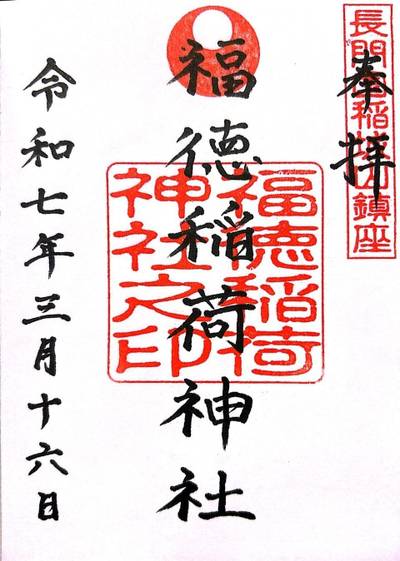 長門國稲荷山鎮座
奉拝
福徳稲荷神社
福徳稲荷
神社之印
令和七年三月十六日